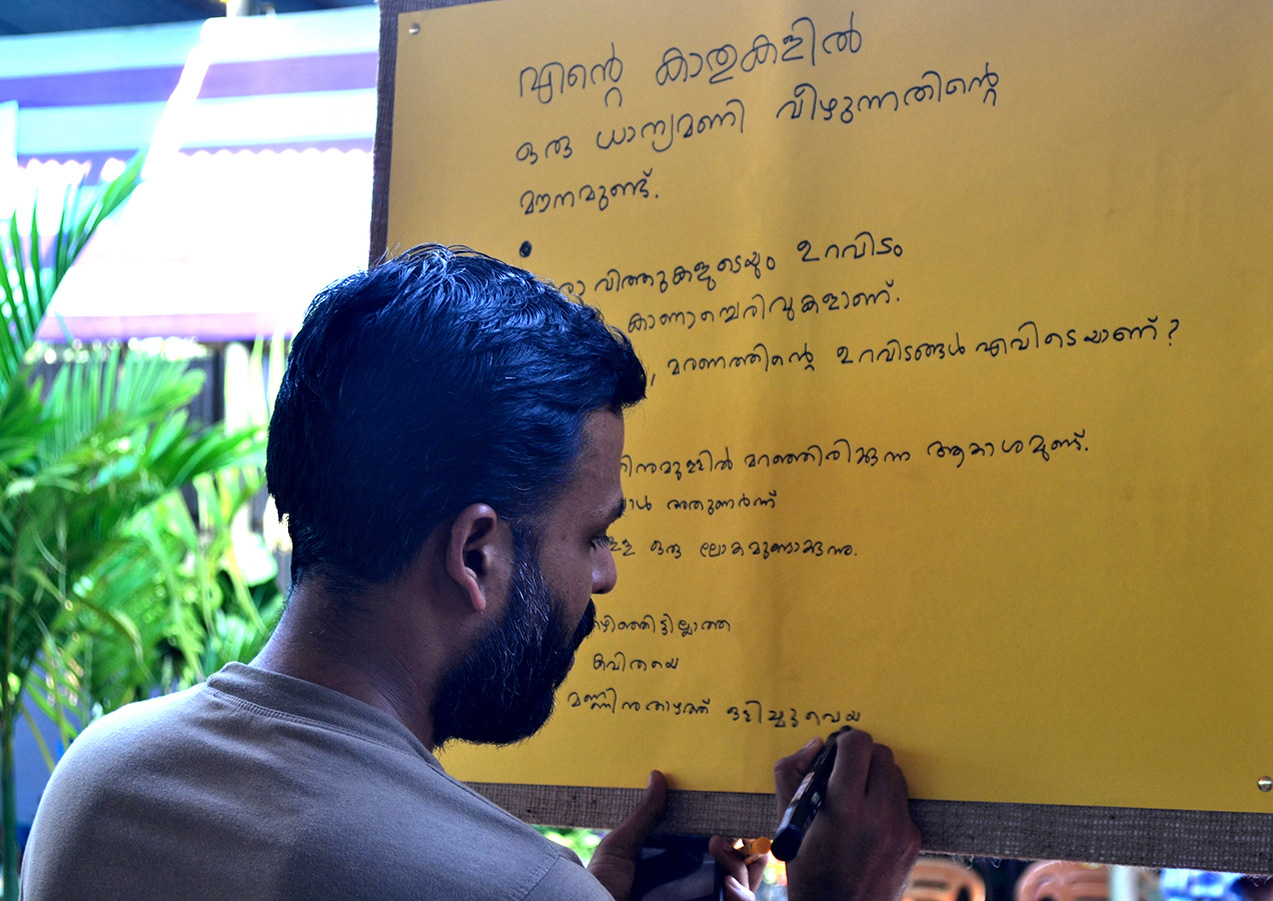 എന്റെ കാതുകളിൽ
ഒരു ധാന്യമണി വീഴുന്നതിന്റെ
മൗനമുണ്ട്.
വിത്തുകളുടെയും ഉറവിടം
കാണാച്ചെരിവുകളാണ്.
, മരണത്തിന്റെ ഉറവിടങ്ങൾ എവിടെയാണ്?
മറഞ്ഞിരിക്കുന്ന ആകാശമുണ്ട്.
അതുണർന്ന്
ഒരു ലോകമുണ്ടാക്കുന്നു.
കവിതയെ
മണ്ണിനുതാഴത്ത് ഒളിച്ചുവെയ